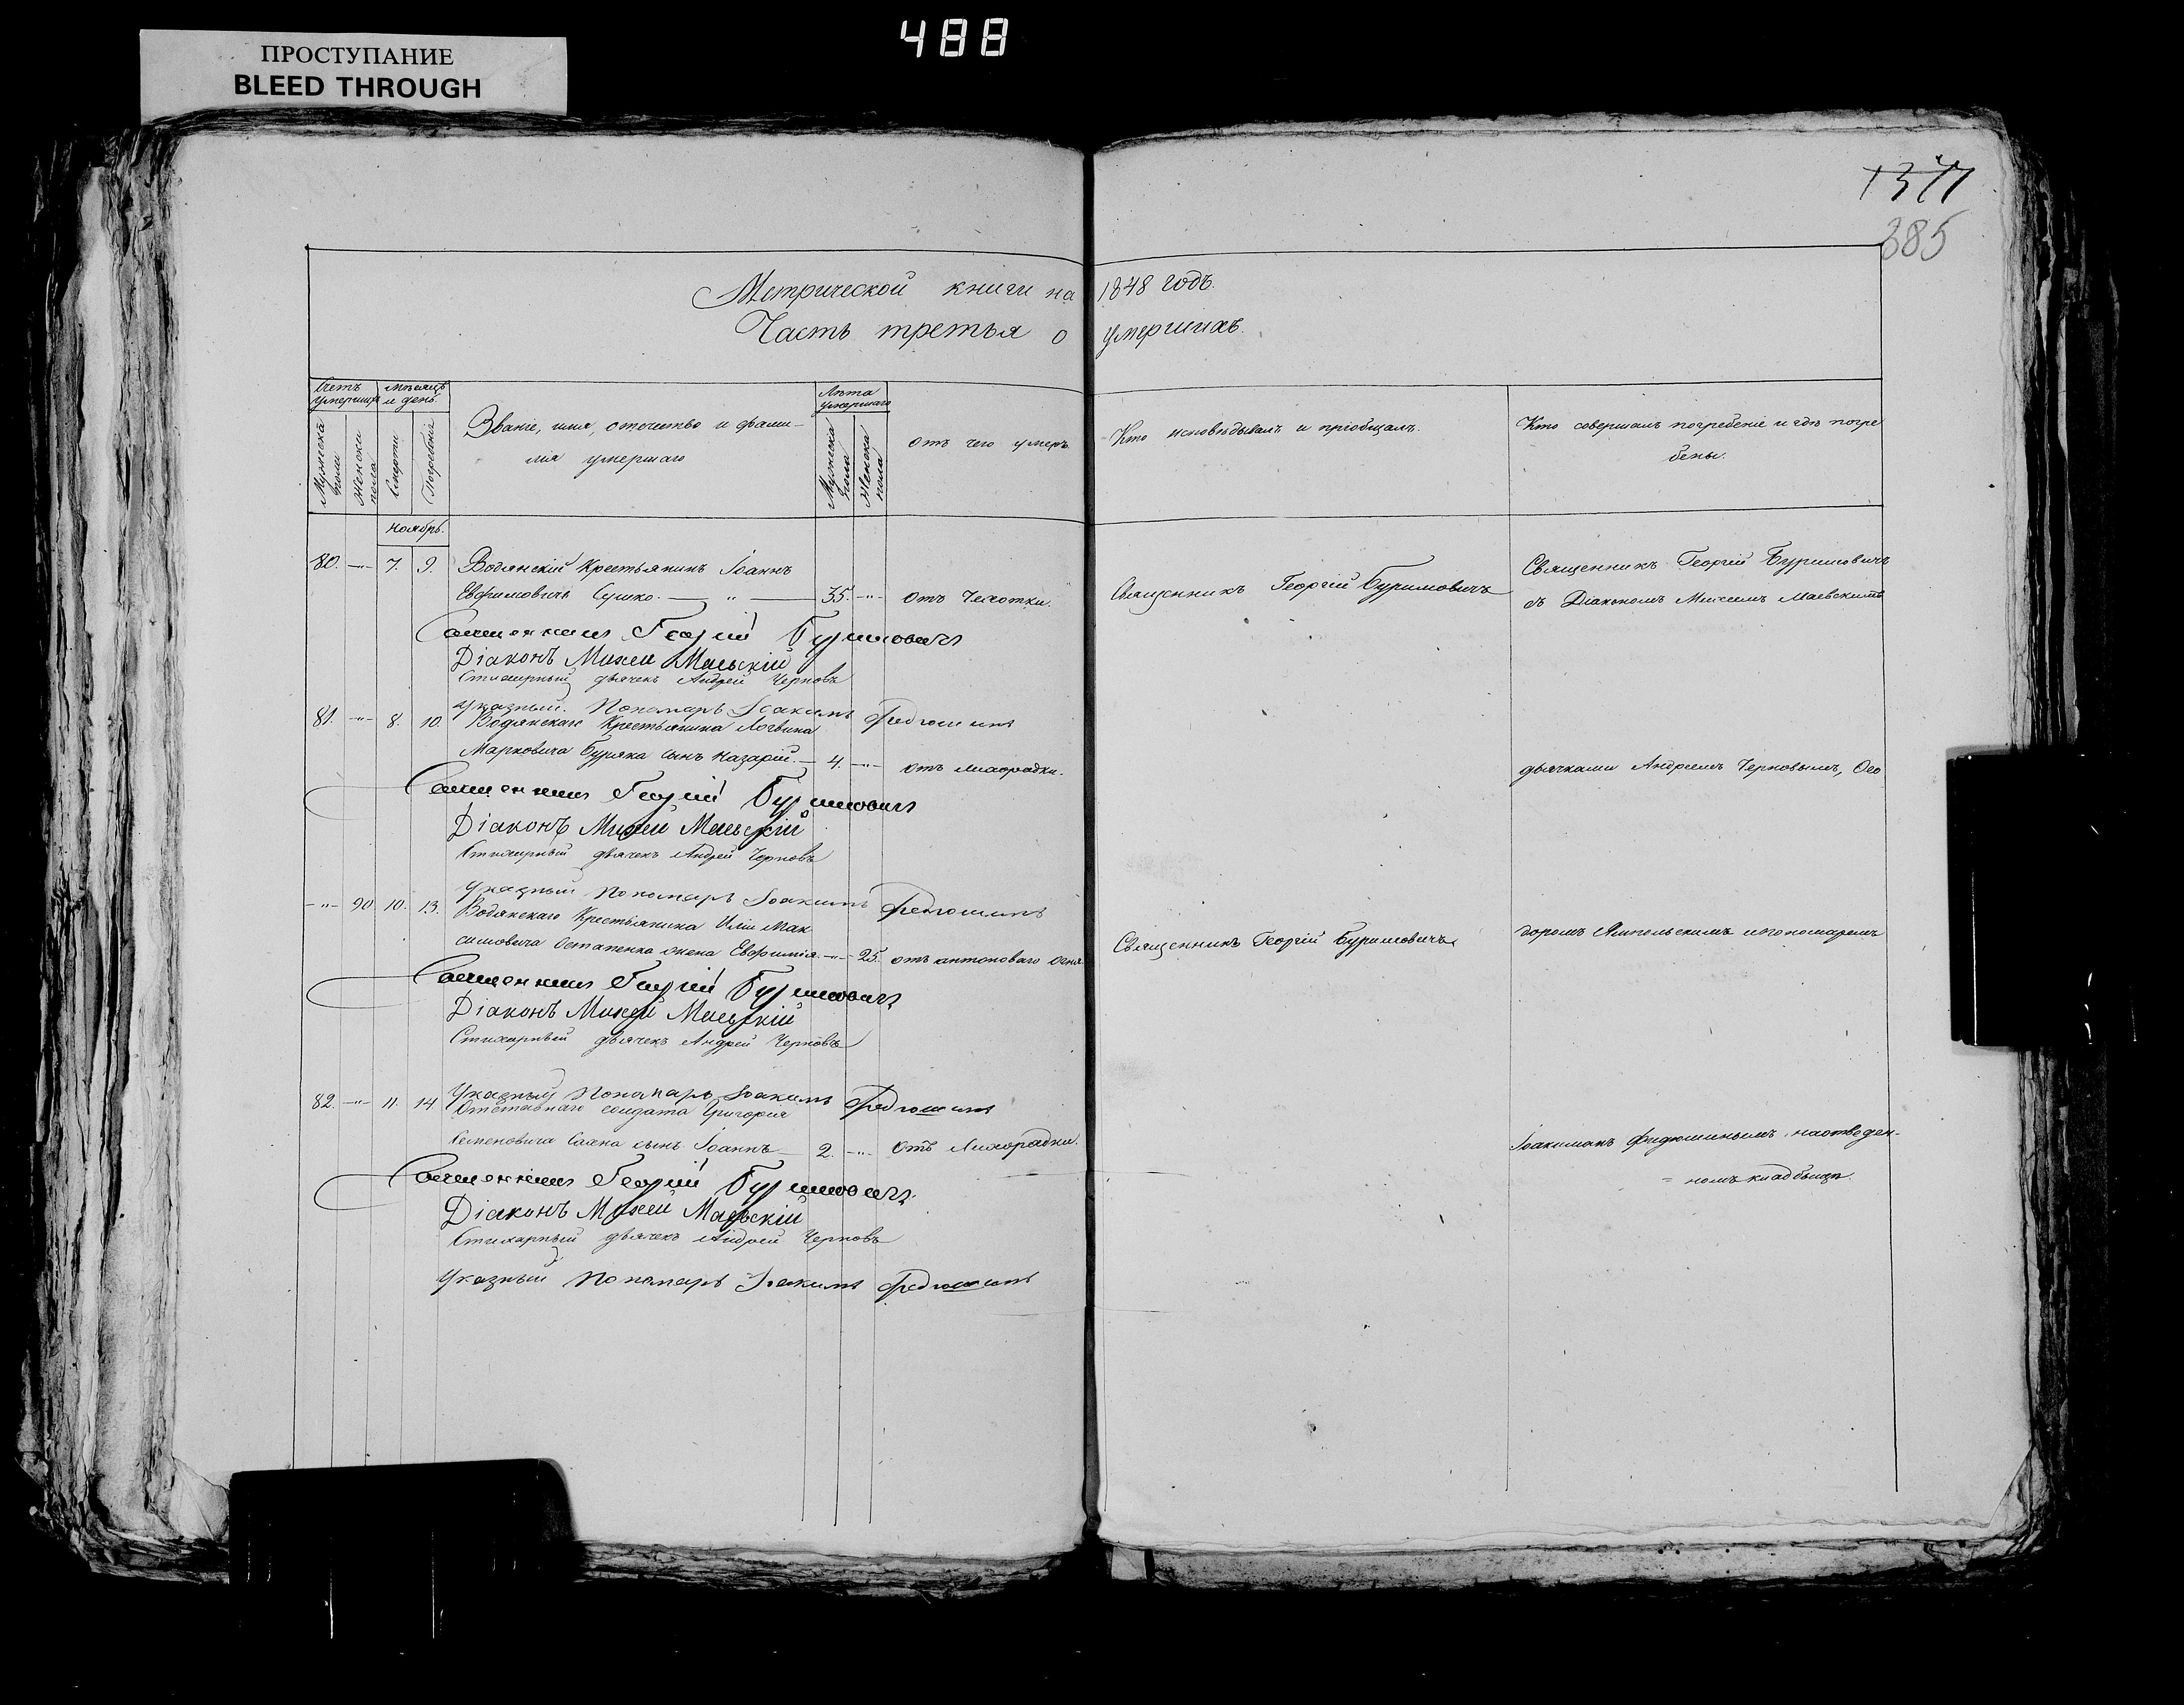 488
ПРОСТУПАНИЕ
BLEED THROUGH
1377
385
Метрической книги на 1848 годъ.
Часть третья о умершихъ.
Счетъ умершихъ
Мужеска пола
Женска пола
Мѣсяцъ и день.
Смерти
Погребенія
Званіе, имя, отчество и фами-
лія умершаго
Лѣта умершаго
Мужеска пола
Женска пола
отъ чего умеръ.
Кто исповѣдывалъ и пріобщалъ.
Кто совершалъ погребеніе и гдѣ погре
бены.
Ноябрь.
80. —"— 7. 9. Водянскій Крестьянинъ Іоаннъ
Евфимовичъ Сушко. — " — 35. —"— отъ Чехотки.
Священникъ Георгій Буримовичъ
Священникъ Георгій Буримовичъ
съ Діакономъ Михеемъ Маевскимъ
Священникъ Георгій Буримовичъ
Діаконъ Михей Маевскій
Стихарный дьячекъ Андрей Черновъ
Указный Пономарь Іоакимъ Федюшинъ
81. —"— 8. 10. Водянскаго Крестьянина Логвина
Марковича Буряка сынъ Назарій. — 4. —"— отъ лихорадки.
дьячками Андреемъ Черновымъ, Ѳео
Священникъ Георгій Буримовичъ
Діаконъ Михей Маевскій
Стихарный дьячекъ Андрей Черновъ
Указный Пономарь Іоакимъ Федюшинъ
—"— 90. 10. 13. Водянскаго Крестьянина Иліи Мак-
симовича Остапенка жена Евфимія. —"— 25. отъ антонова огня
Священникъ Георгій Буримовичъ
доромъ Ямпольскимъ и пономаремъ
Священникъ Георгій Буримовичъ
Діаконъ Михей Маевскій
Стихарный дьячекъ Андрей Черновъ
Указный Пономарь Іоакимъ Федюшинъ
82. —"— 11. 14. Отставнаго солдата Григорія
Семеновича сынъ Іоаннъ — 2. —"— отъ Лихорадки.
Іоакимомъ Федюшинымъ, на отведен-
= номъ кладбищѣ.
Священникъ Георгій Буримовичъ
Діаконъ Михей Маевскій
Стихарный дьячекъ Андрей Черновъ
Указный Пономарь Іоакимъ Федюшинъ